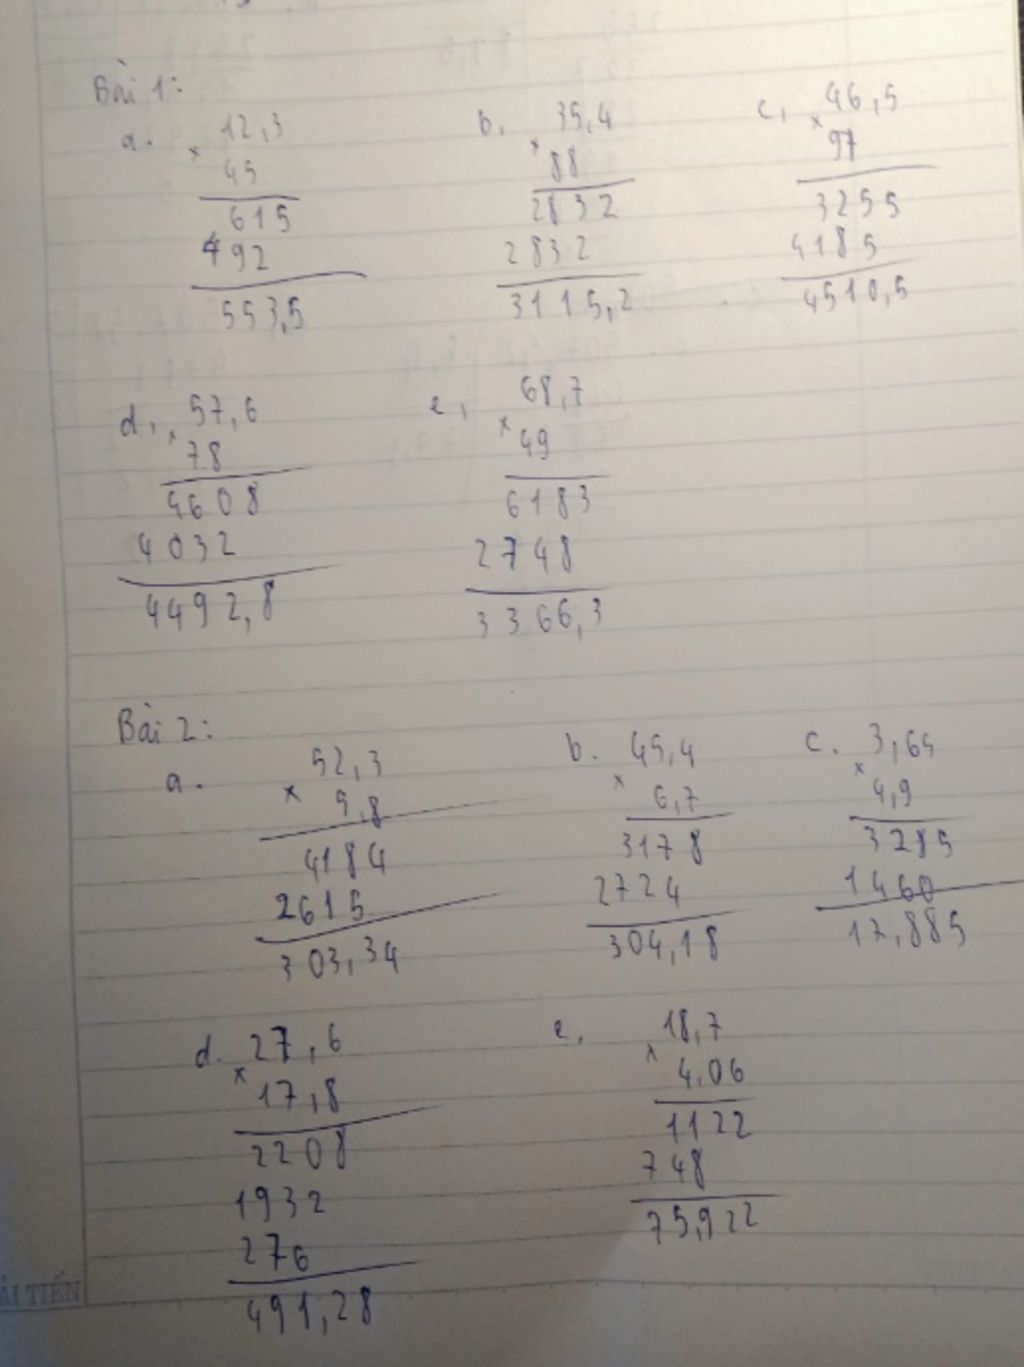 Bài 1:
a. 12,3 b, 35,4 c, 46,5
× 45 × 88 × 97
615 2832 3255
492 2832 4185
553,5 3115,2 4510,5
d, 57,6 e, 68,7
× 78 × 49
4608 6183
4032 2748
4492,8 3366,3
Bài 2:
a. 52,3 b. 45,4 c. 3,65
× 5,8 × 6,7 × 4,9
4184 3178 3285
2615 2724 1460
303,34 304,18 17,885
d. 27,6 e, 18,7
× 17,8 × 4,06
2208 1122
1932 748
276 75,922
491,28
ẢI TIẾN